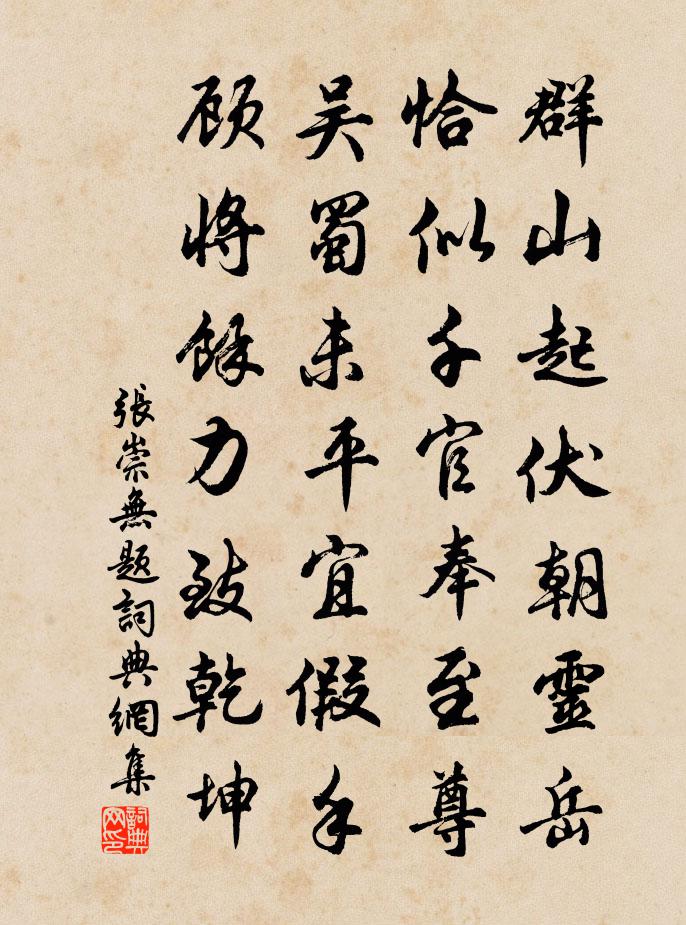 群山起伏朝靈岳
恰似千官奉至尊
吴蜀未平宜假手
顾將餘力致乾坤
張崇無題詞典網集
詞典网印